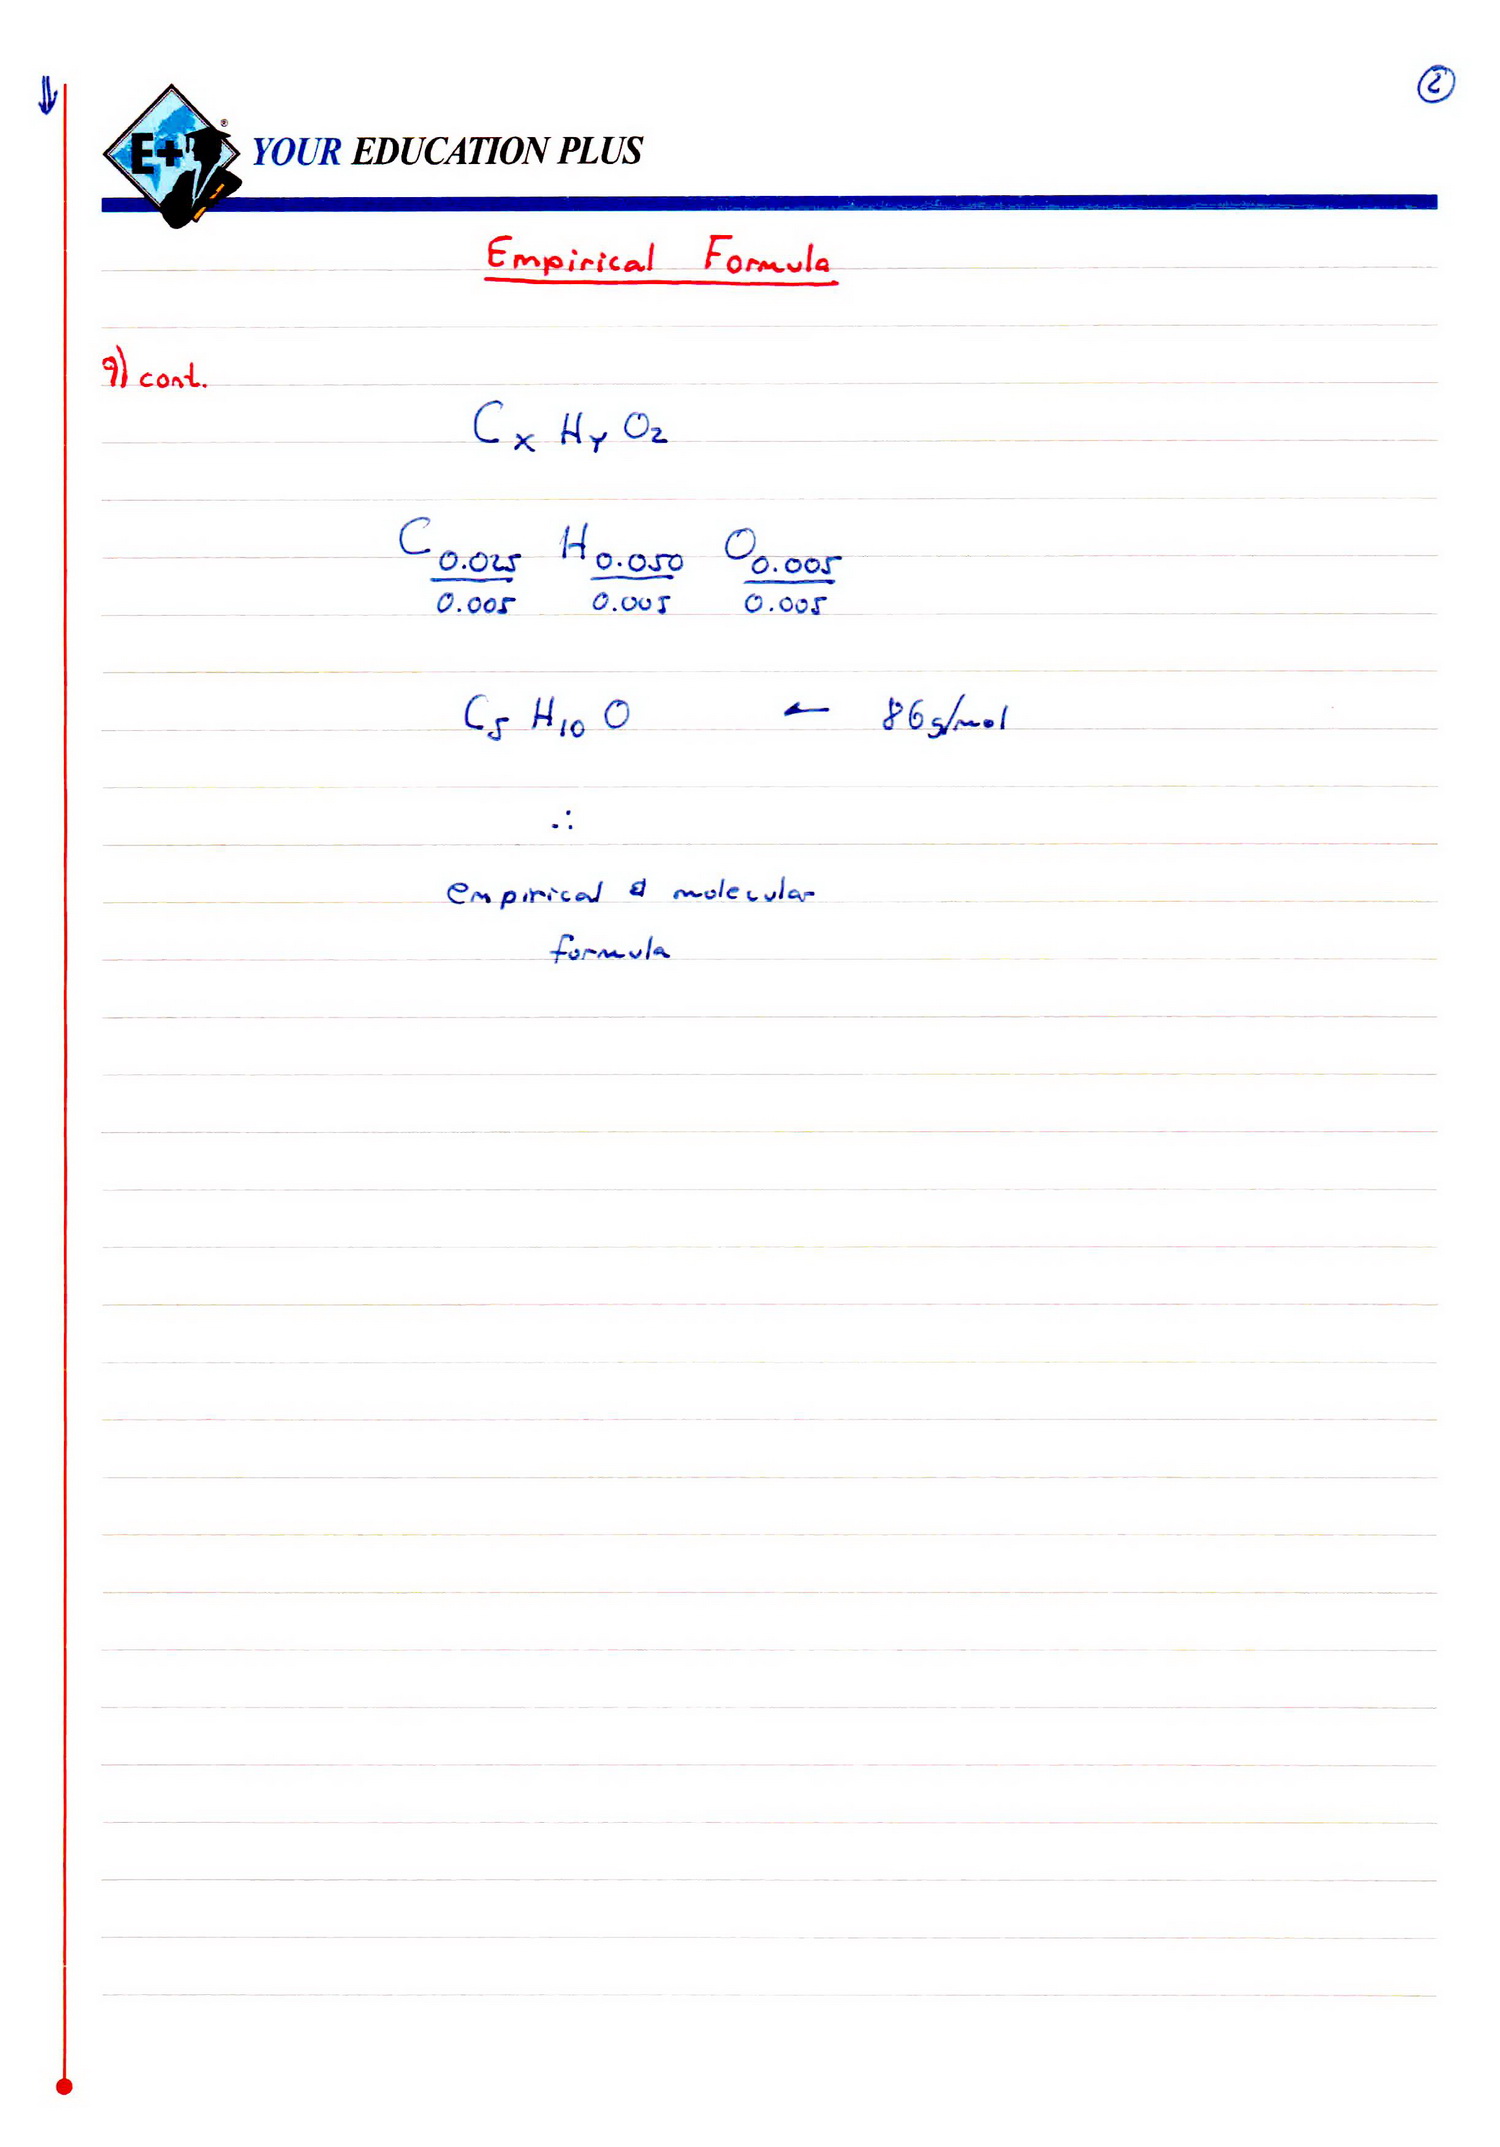 ⇓ ②
E+ ® YOUR EDUCATION PLUS
Empirical Formula
9) cont.
CₓHᵧO₂
C 0.025/0.005 H 0.050/0.005 O 0.005/0.005
C₅H₁₀O ← 86g/mol
∴
empirical & molecular
formula